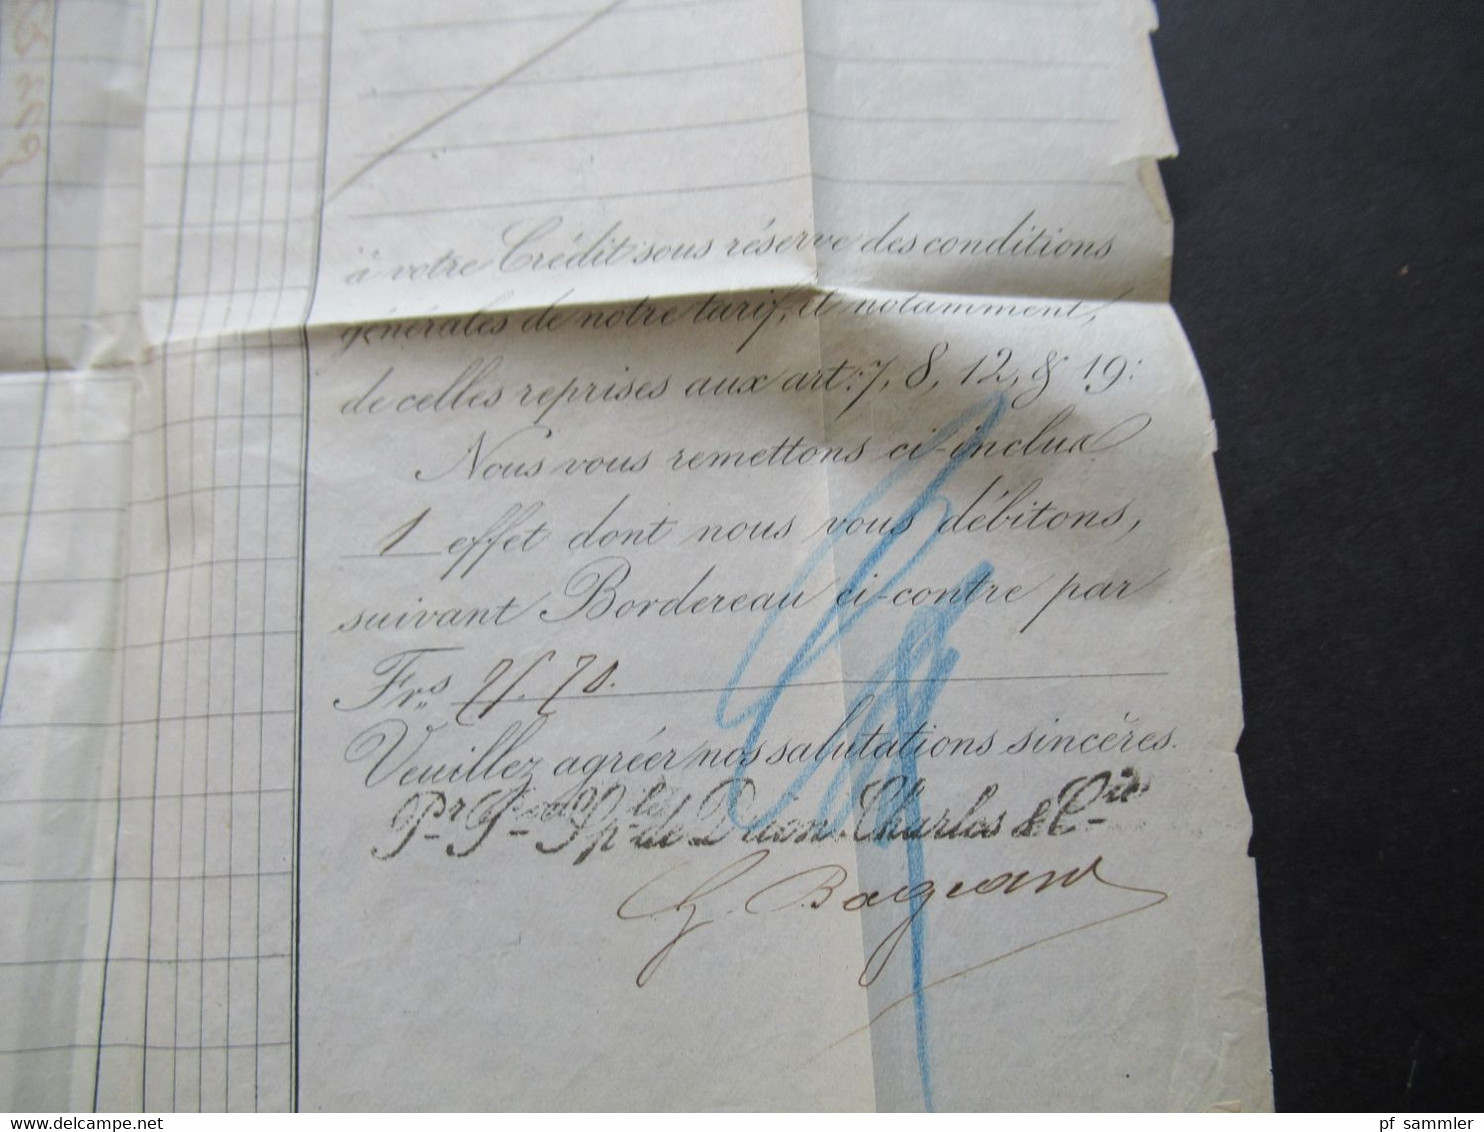 à votre Crédit sous réserve des conditions
générales de notre tarif, et notamment,
de celles reprises aux art: 7, 8, 12, & 19:
Nous vous remettons ci-inclus
1 effet dont nous vous débitons,
suivant Bordereau ci-contre par
Frs 75.70.
Veuillez agréer nos salutations sincères.
Pr. de Charles & Cie
G. Bagnard
pf_sammler